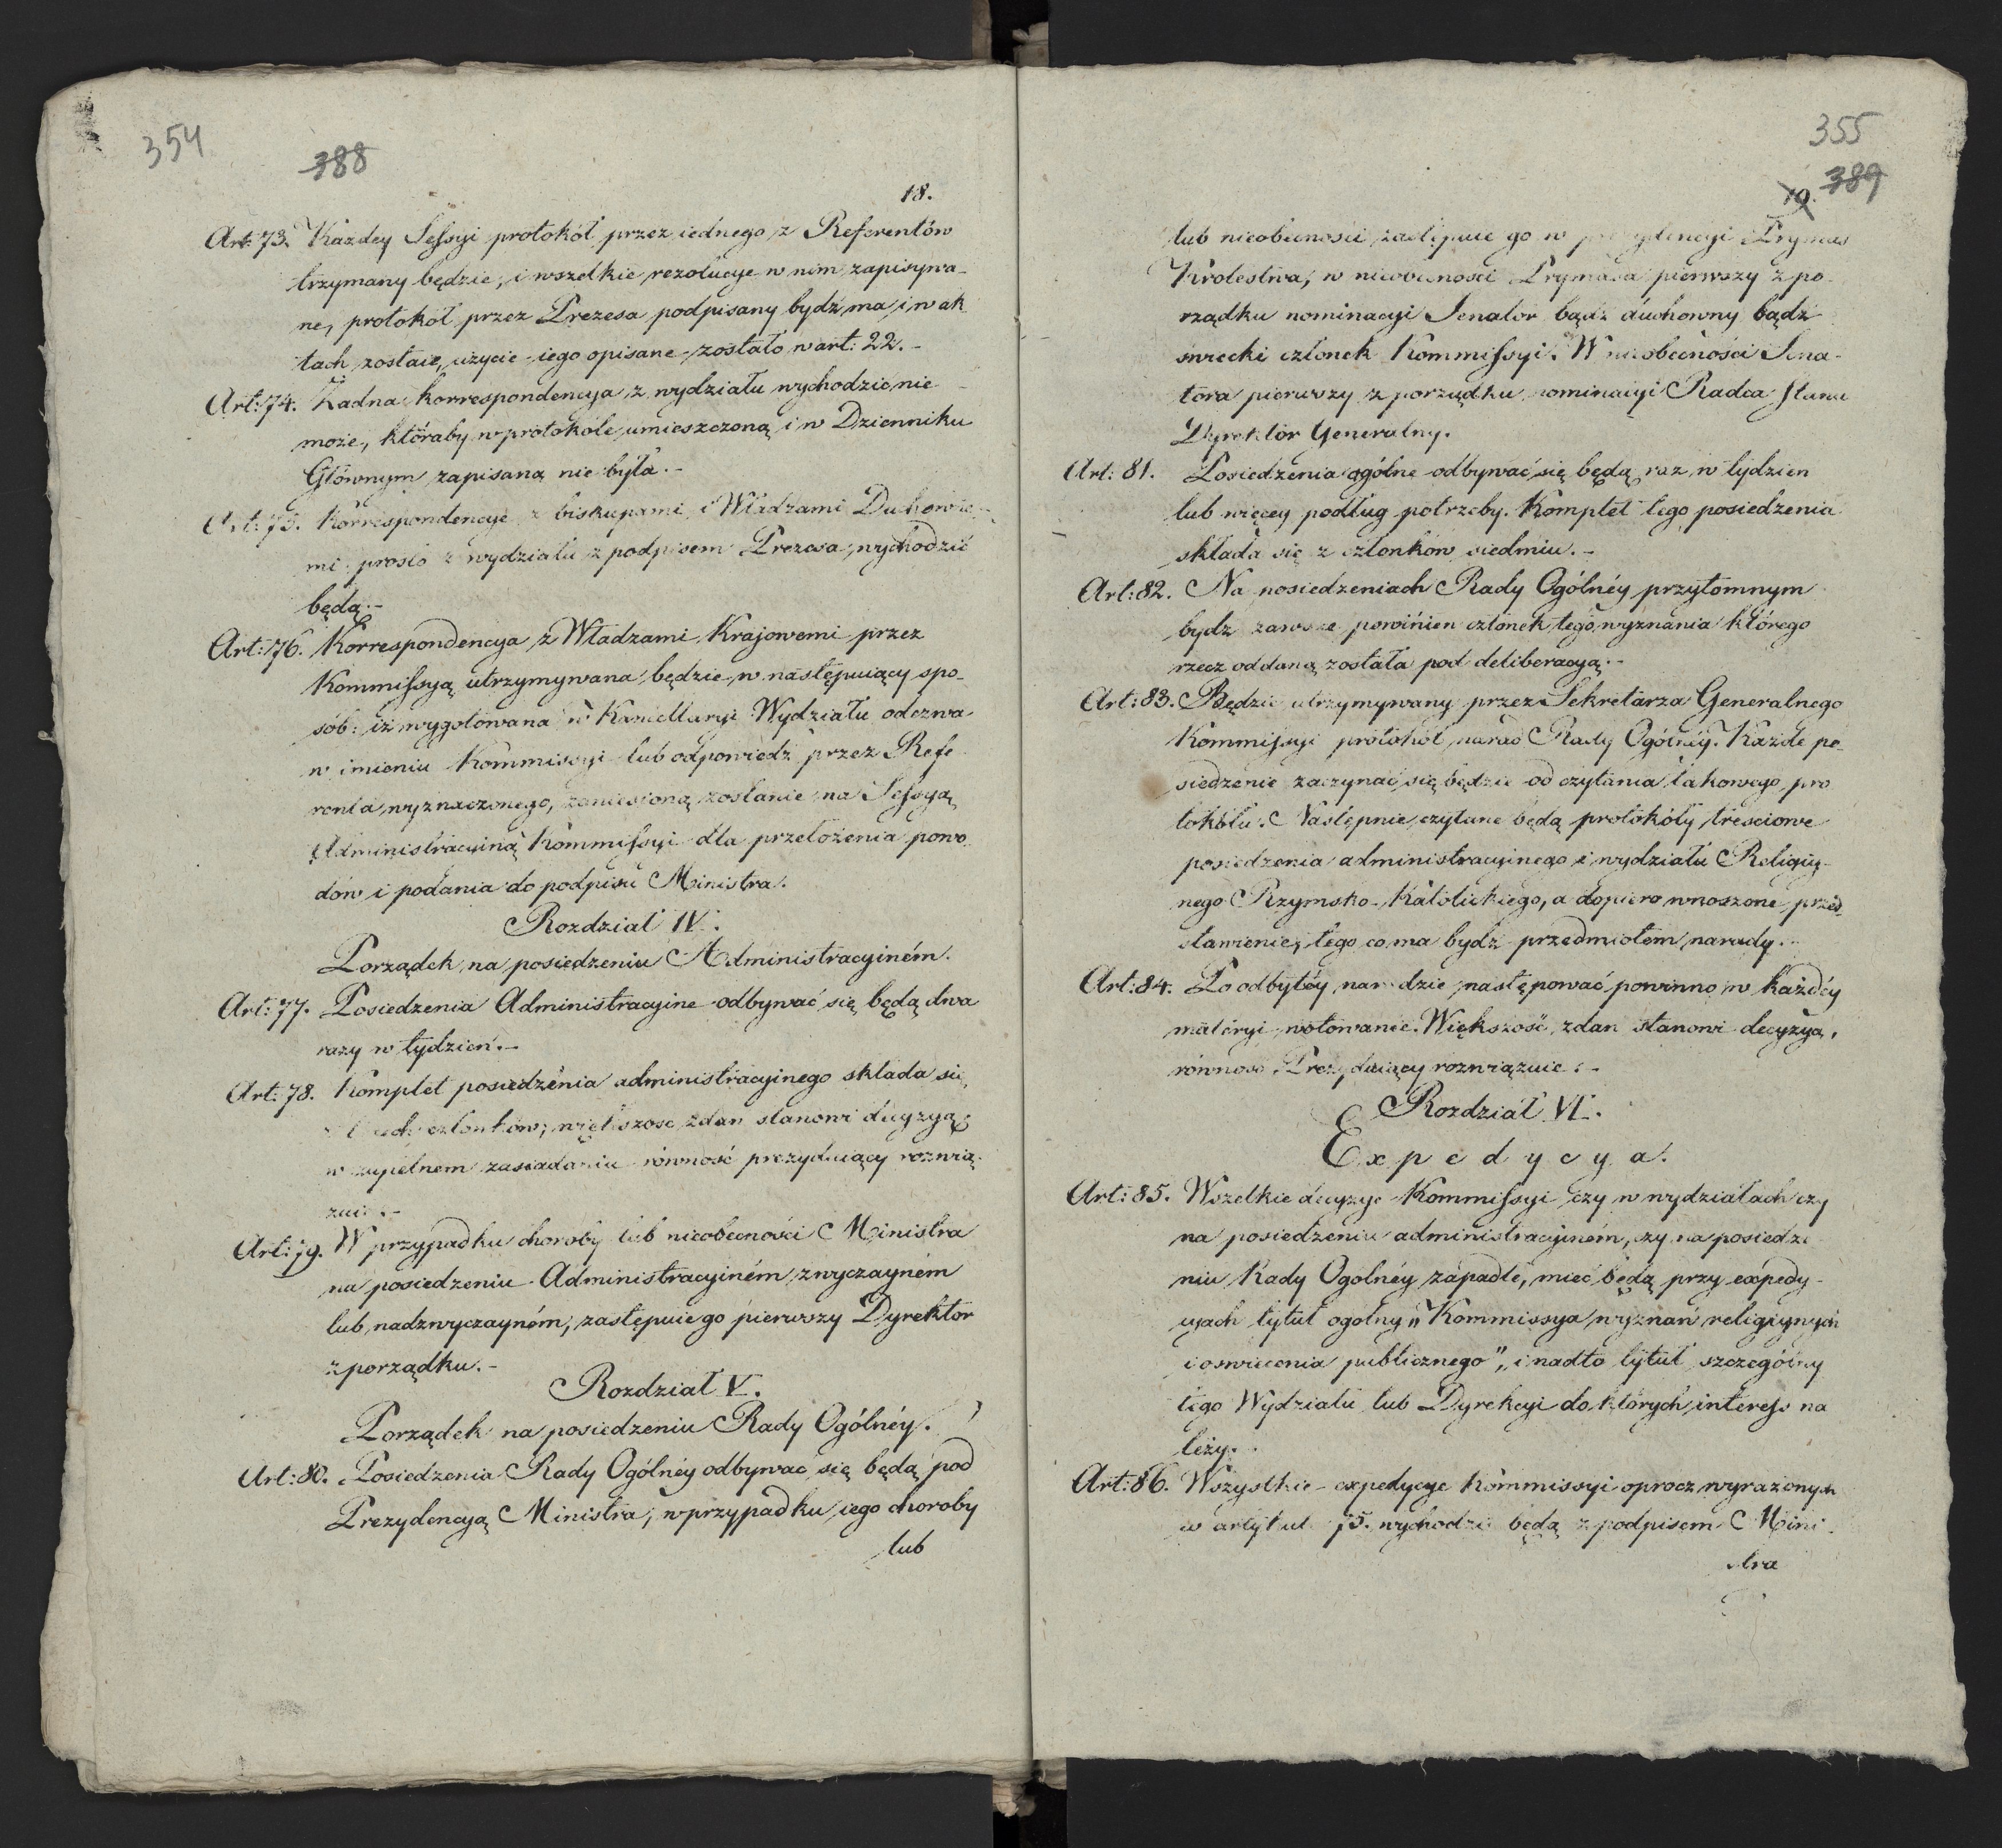 354
388
18.
Art: 73. Każdey Sessyi protokół przez iednego z Referentów
trzymany będzie, i wszelkie rezolucye w nim zapisywa-
ne, protokół przez Prezesa podpisany bydź ma i w ak
tach zostaie, użycie iego opisane zostało w art: 22.-
Art: 74. Żadna korrespondencya z wydziału wychodzić nie
może, któraby w protokóle umieszczoną i w Dzienniku
Głównym zapisaną nie była.-
Art: 75. Korrespondencye z biskupami i Władzami Duchowne-
mi prosto z wydziału z podpisem Prezesa wychodzić
będą.-
Art: 76. Korrespondencya z Władzami Krajowemi przez
Kommissyą utrzymywana będzie w następuiący spo-
sób: iż wygotowana w Kancellaryi Wydziału odezwa
w imieniu Kommissyi lub odpowiedź przez Refe
renta wyznaczonego, zaniesioną zostanie na Sessyą
Administracyiną Kommissyi dla przełożenia powo
dów i podania do podpisu Ministra.
Rozdział IV.
Porządek na posiedzeniu Administracyiném.
Art: 77. Posiedzenia Administracyine odbywać się będą dwa
razy w tydzień.-
Art: 78. Komplet posiedzenia administracyinego składa się
członków; większość zdań stanowi decyzyą;
w zupełnem zasiadaniu równość prezyduiący rozwią-
zuie.-
Art: 79. W przypadku choroby lub nieobecności Ministra
na posiedzeniu Administracyiném zwyczayném
lub nadzwyczayném, zastępuie go pierwszy Dyrektor
z porządku.-
Rozdział V.
Porządek na posiedzeniu Rady Ogólnéy.
Art: 80. Posiedzenia Rady Ogólnéy odbywać się będą pod
Prezydencyą Ministra, w przypadku iego choroby
lub
355
389
19.
lub nieobecności zastępuie go w prezydencyi Prymas
Królestwa, w nieobecności Prymasa pierwszy z po
rządku nominacyi Senator bądź duchowny bądź
świecki członek Kommissyi. W nieobecności Sena-
tora pierwszy z porządku nominacyi Radca Stanu
Dyrektor Generalny.
Art: 81. Posiedzenia ogólne odbywać się będą raz w tydzień
lub więcey podług potrzeby. Komplet tego posiedzenia
składa się z członków siedmiu.-
Art: 82. Na posiedzeniach Rady Ogólnéy przytomnym
bydz zawsze powinien członek tego wyznania którego
rzecz oddaną została pod deliberacyą.-
Art: 83. Będzie utrzymywany przez Sekretarza Generalnego
Kommissyi protokół narad Rady Ogólnéy. Każde po-
siedzenie zaczynać się będzie od czytania takowego pro
tokółu. Następnie czytane będą protokóły treściowe
posiedzenia administracyinego i wydziału Religiy-
nego Rzymsko-Katolickiego, a dopiero wnoszone przed
stawienie, tego co ma bydź przedmiotem narady.-
Art: 84. Po odbytéy naradzie następować powinno w każdéy
materyi wotowanie. Większość zdań stanowi decyzyą,
równość Prezyduiący rozwiązuie.-
Rozdział VI.
Expedycya.
Art: 85. Wszelkie decyzye Kommissyi czy w wydziałach czy
na posiedzeniu administracyiném, czy na posiedze
niu Rady Ogólnéy zapadłe, mieć będą przy expedy-
cyach tytuł ogólny „Kommissya wyznań religiynych
i oświecenia publicznego”, i nadto tytuł szczególny
tego Wydziału lub Dyrekcyi do których interess na
leży.
Art: 86. Wszystkie expedycye Kommissyi oprócz wyrażonych
w artykule 75. wychodzić będą z podpisem Mini-
stra